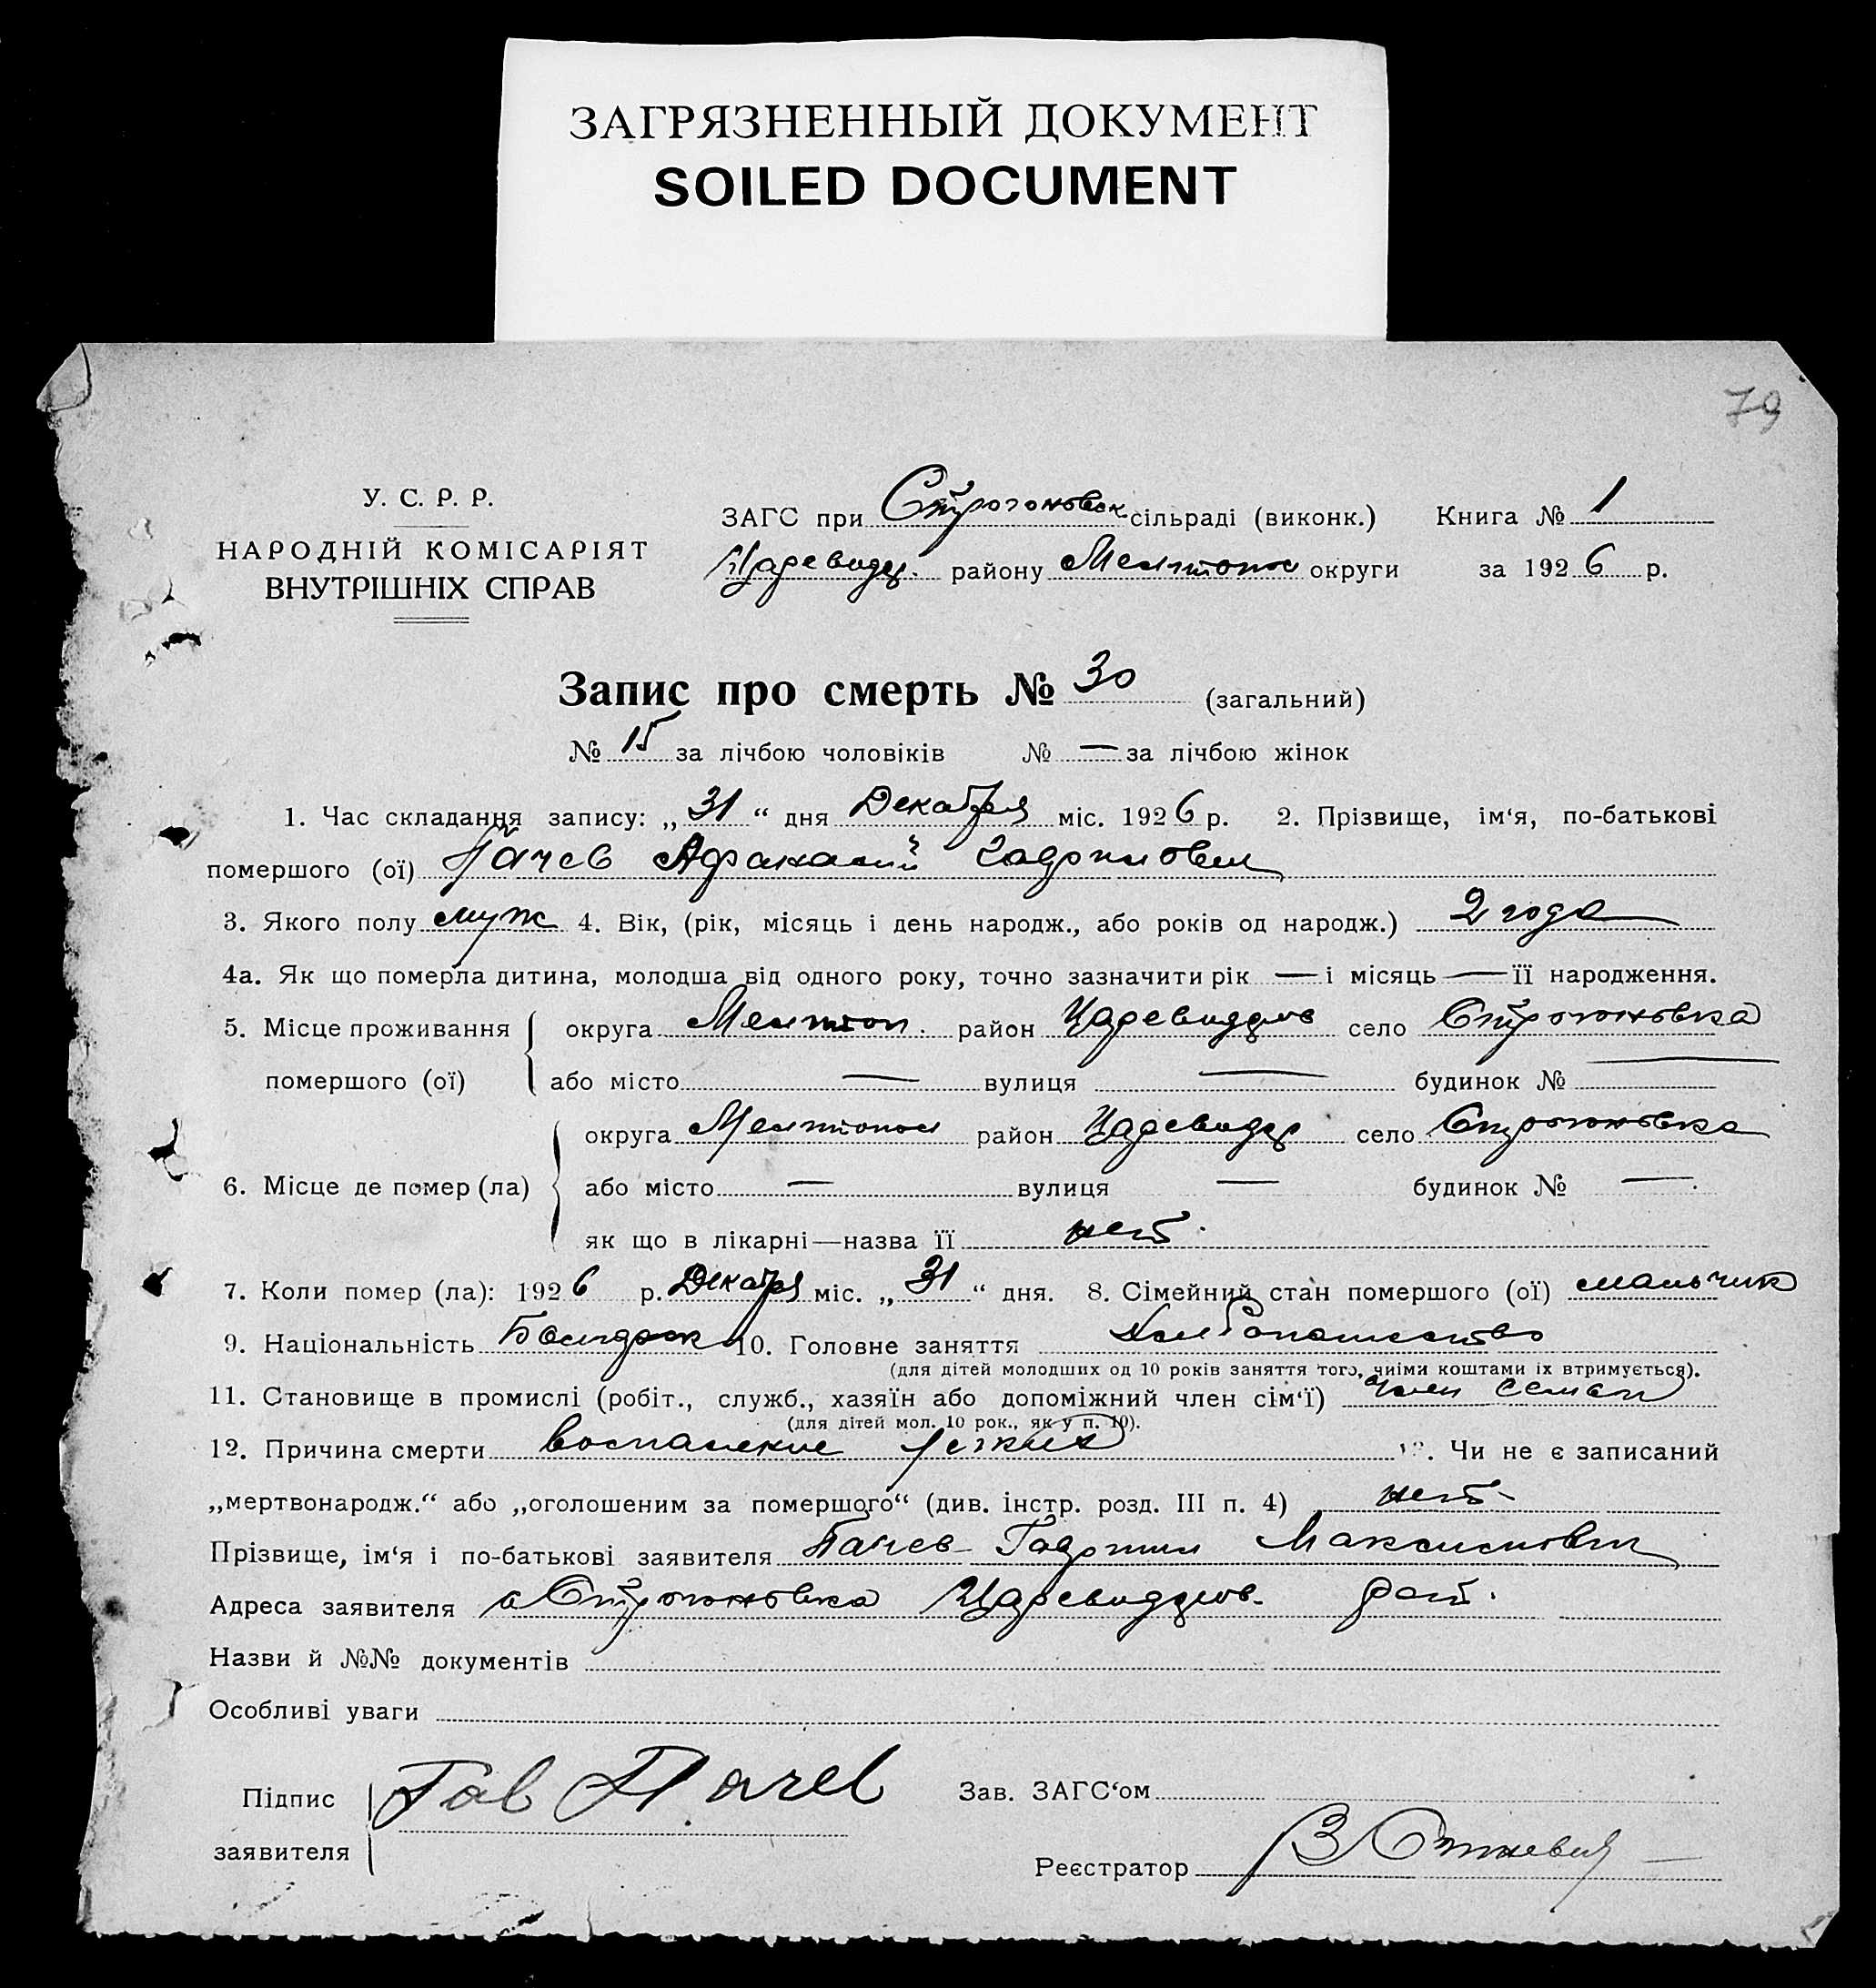 ЗАГРЯЗНЕННЫЙ ДОКУМЕНТ
SOILED DOCUMENT
79
У. С. Р. Р.
НАРОДНІЙ КОМІСАРІЯТ
ВНУТРІШНІХ СПРАВ
ЗАГС при Строгоновск сільраді (виконк.) Книга № 1
Царевидц. району Мелитопол округи за 1926 р.
Запис про смерть № 30 (загальний)
№ 15 за лічбою чоловіків № — за лічбою жінок
1. Час складання запису: „31“ дня Декабря міс. 1926 р. 2. Прізвище, ім‘я, по-батькові
помершого (ої) Пачев Афанасий Гаврилович
3. Якого полу муж 4. Вік, (рік, місяць і день народж., або років од народж.) 2 года
4а. Як що померла дитина, молодша від одного року, точно зазначити рік — і місяць — її народження.
5. Місце проживання округа Мелитоп. район Царевидцов село Строгоновка
помершого (ої) або місто — вулиця — будинок № —
округа Мелитопол район Царевидц село Строгоновка
6. Місце де помер (ла) або місто — вулиця — будинок № —
як що в лікарні—назва її нет.
7. Коли помер (ла): 1926 р. Декабря міс. „31“ дня. 8. Сімейний стан помершого (ої) мальчик
9. Національність Болгарск 10. Головне заняття Хлебопашество
(для дітей молодших од 10 років заняття того, чиіми коштами їх втримується).
11. Становище в промислі (робіт., служб., хазяїн або допоміжний член сім‘ї) член семьи
(для дітей мол. 10 рок., як у п. 10).
12. Причина смерти воспаление легких 13. Чи не є записаний
„мертвонародж.“ або „оголошеним за помершого“ (див. інстр. розд. III п. 4) нет
Прізвище, ім‘я і по-батькові заявителя Пачев Гаврил Максимович
Адреса заявителя с Строгоновка Царевидцов. рай.
Назви й №№ документів
Особливі уваги
Підпис Гав Пачев Зав. ЗАГС‘ом
заявителя
Реєстратор